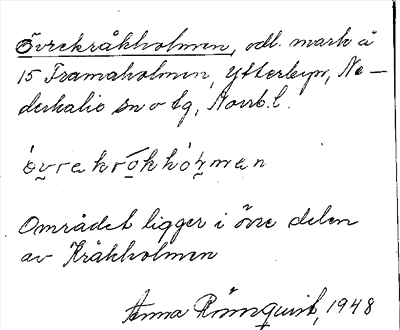 Övrekråkholmen, odl. mark å
15 Framaholmen, Ytterbyn, Ne-
derkalix sn o tg, Norrb. l.
övrekrókhóḷmen
Området ligger i övre delen
av Kråkholmen
Anna Rönnquist, 1948